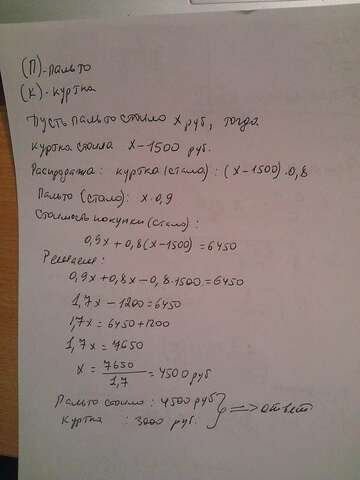 (П)-пальто
(К)-куртка
Пусть пальто стоило x руб, тогда
куртка стоила x-1500 руб.
Распродажа: куртка (стала): (x-1500)·0,8
Пальто (стало): x·0,9
Стоимость покупки (стало):
0,9x+0,8(x-1500)=6450
Решаем:
0,9x+0,8x-0,8·1500=6450
1,7x-1200=6450
1,7x=6450+1200
1,7x=7650
x = 7650/1,7 = 4500 руб
Пальто стоило: 4500 руб
Куртка : 3000 руб. => ответ